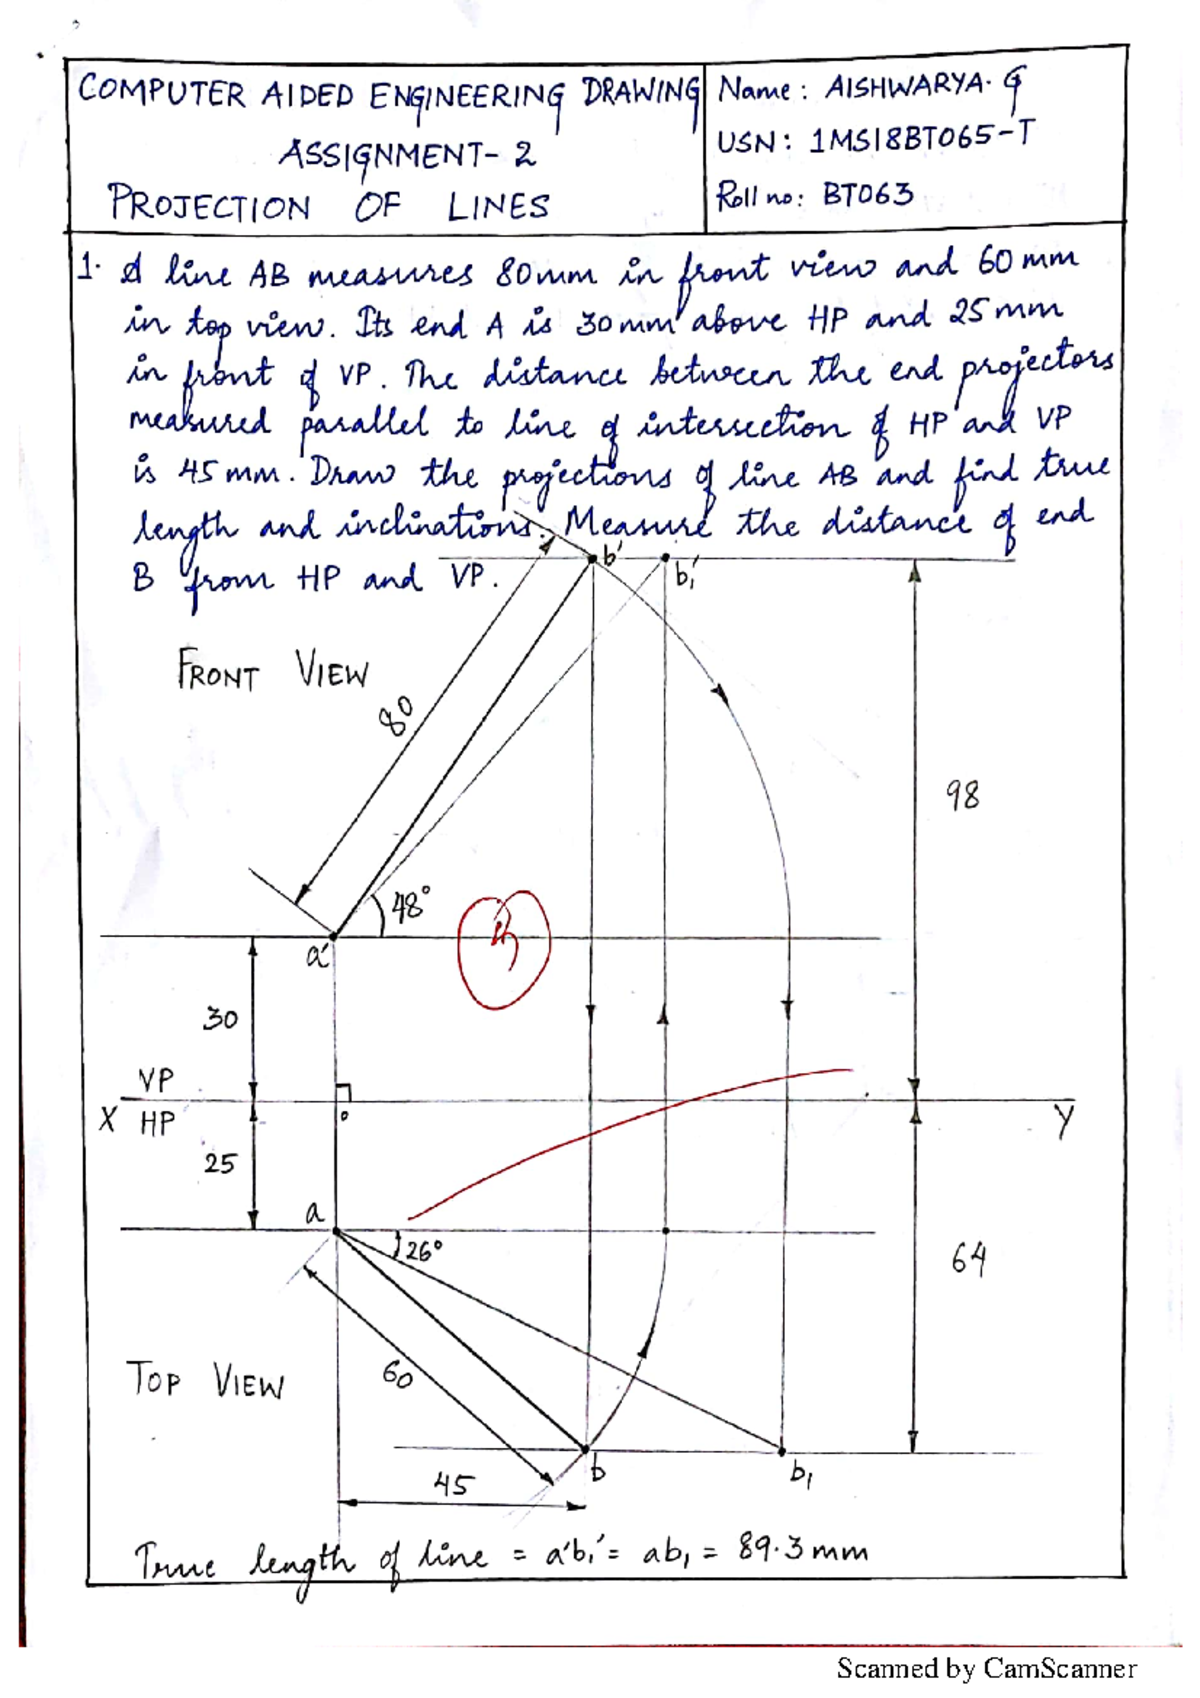 COMPUTER AIDED ENGINEERING DRAWING
ASSIGNMENT-2
PROJECTION OF LINES
Name: AISHWARYA.G
USN: 1MS18BT065-T
Roll no: BT063
1. A line AB measures 80mm in front view and 60 mm
in top view. Its end A is 30mm above HP and 25mm
in front of VP. The distance between the end projectors
measured parallel to line of intersection of HP and VP
is 45 mm. Draw the projections of line AB and find true
length and inclinations. Measure the distance of end
B from HP and VP.
b'
b₁'
FRONT VIEW
80
98
48°
a'
30
VP
X HP
o
Y
25
a
26°
64
TOP VIEW
60
b
b₁
45
True length of line = a'b₁' = ab₁ = 89.3mm
Scanned by CamScanner